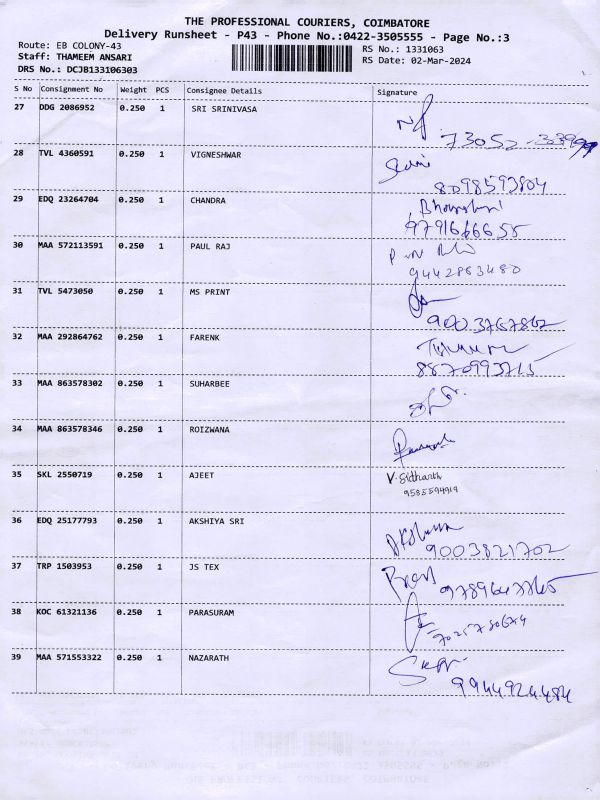 THE PROFESSIONAL COURIERS, COIMBATORE
Delivery Runsheet - P43 - Phone No.:0422-3505555 - Page No.:3
Route: EB COLONY-43
RS No.: 1331063
Staff: THAMEEM ANSARI
RS Date: 02-Mar-2024
DRS No.: DCJB133106303
S No Consignment No Weight PCS Consignee Details Signature
27 DDG 2086952 0.250 1 SRI SRINIVASA
73052
28 TVL 4360591 0.250 1 VIGNESHWAR
8098593804
29 EDQ 23264704 0.250 1 CHANDRA
9791666655
30 MAA 572113591 0.250 1 PAUL RAJ
9442863480
31 TVL 5473050 0.250 1 MS PRINT
9003767862
32 MAA 292864762 0.250 1 FARENK
8870993715
33 MAA 863578302 0.250 1 SUHARBEE
34 MAA 863578346 0.250 1 ROIZWANA
35 SKL 2550719 0.250 1 AJEET V. Sidharth
9585594919
36 EDQ 25177793 0.250 1 AKSHIYA SRI
9003821702
37 TRP 1503953 0.250 1 JS TEX
38 KOC 61321136 0.250 1 PARASURAM
39 MAA 571553322 0.250 1 NAZARATH
9944924484